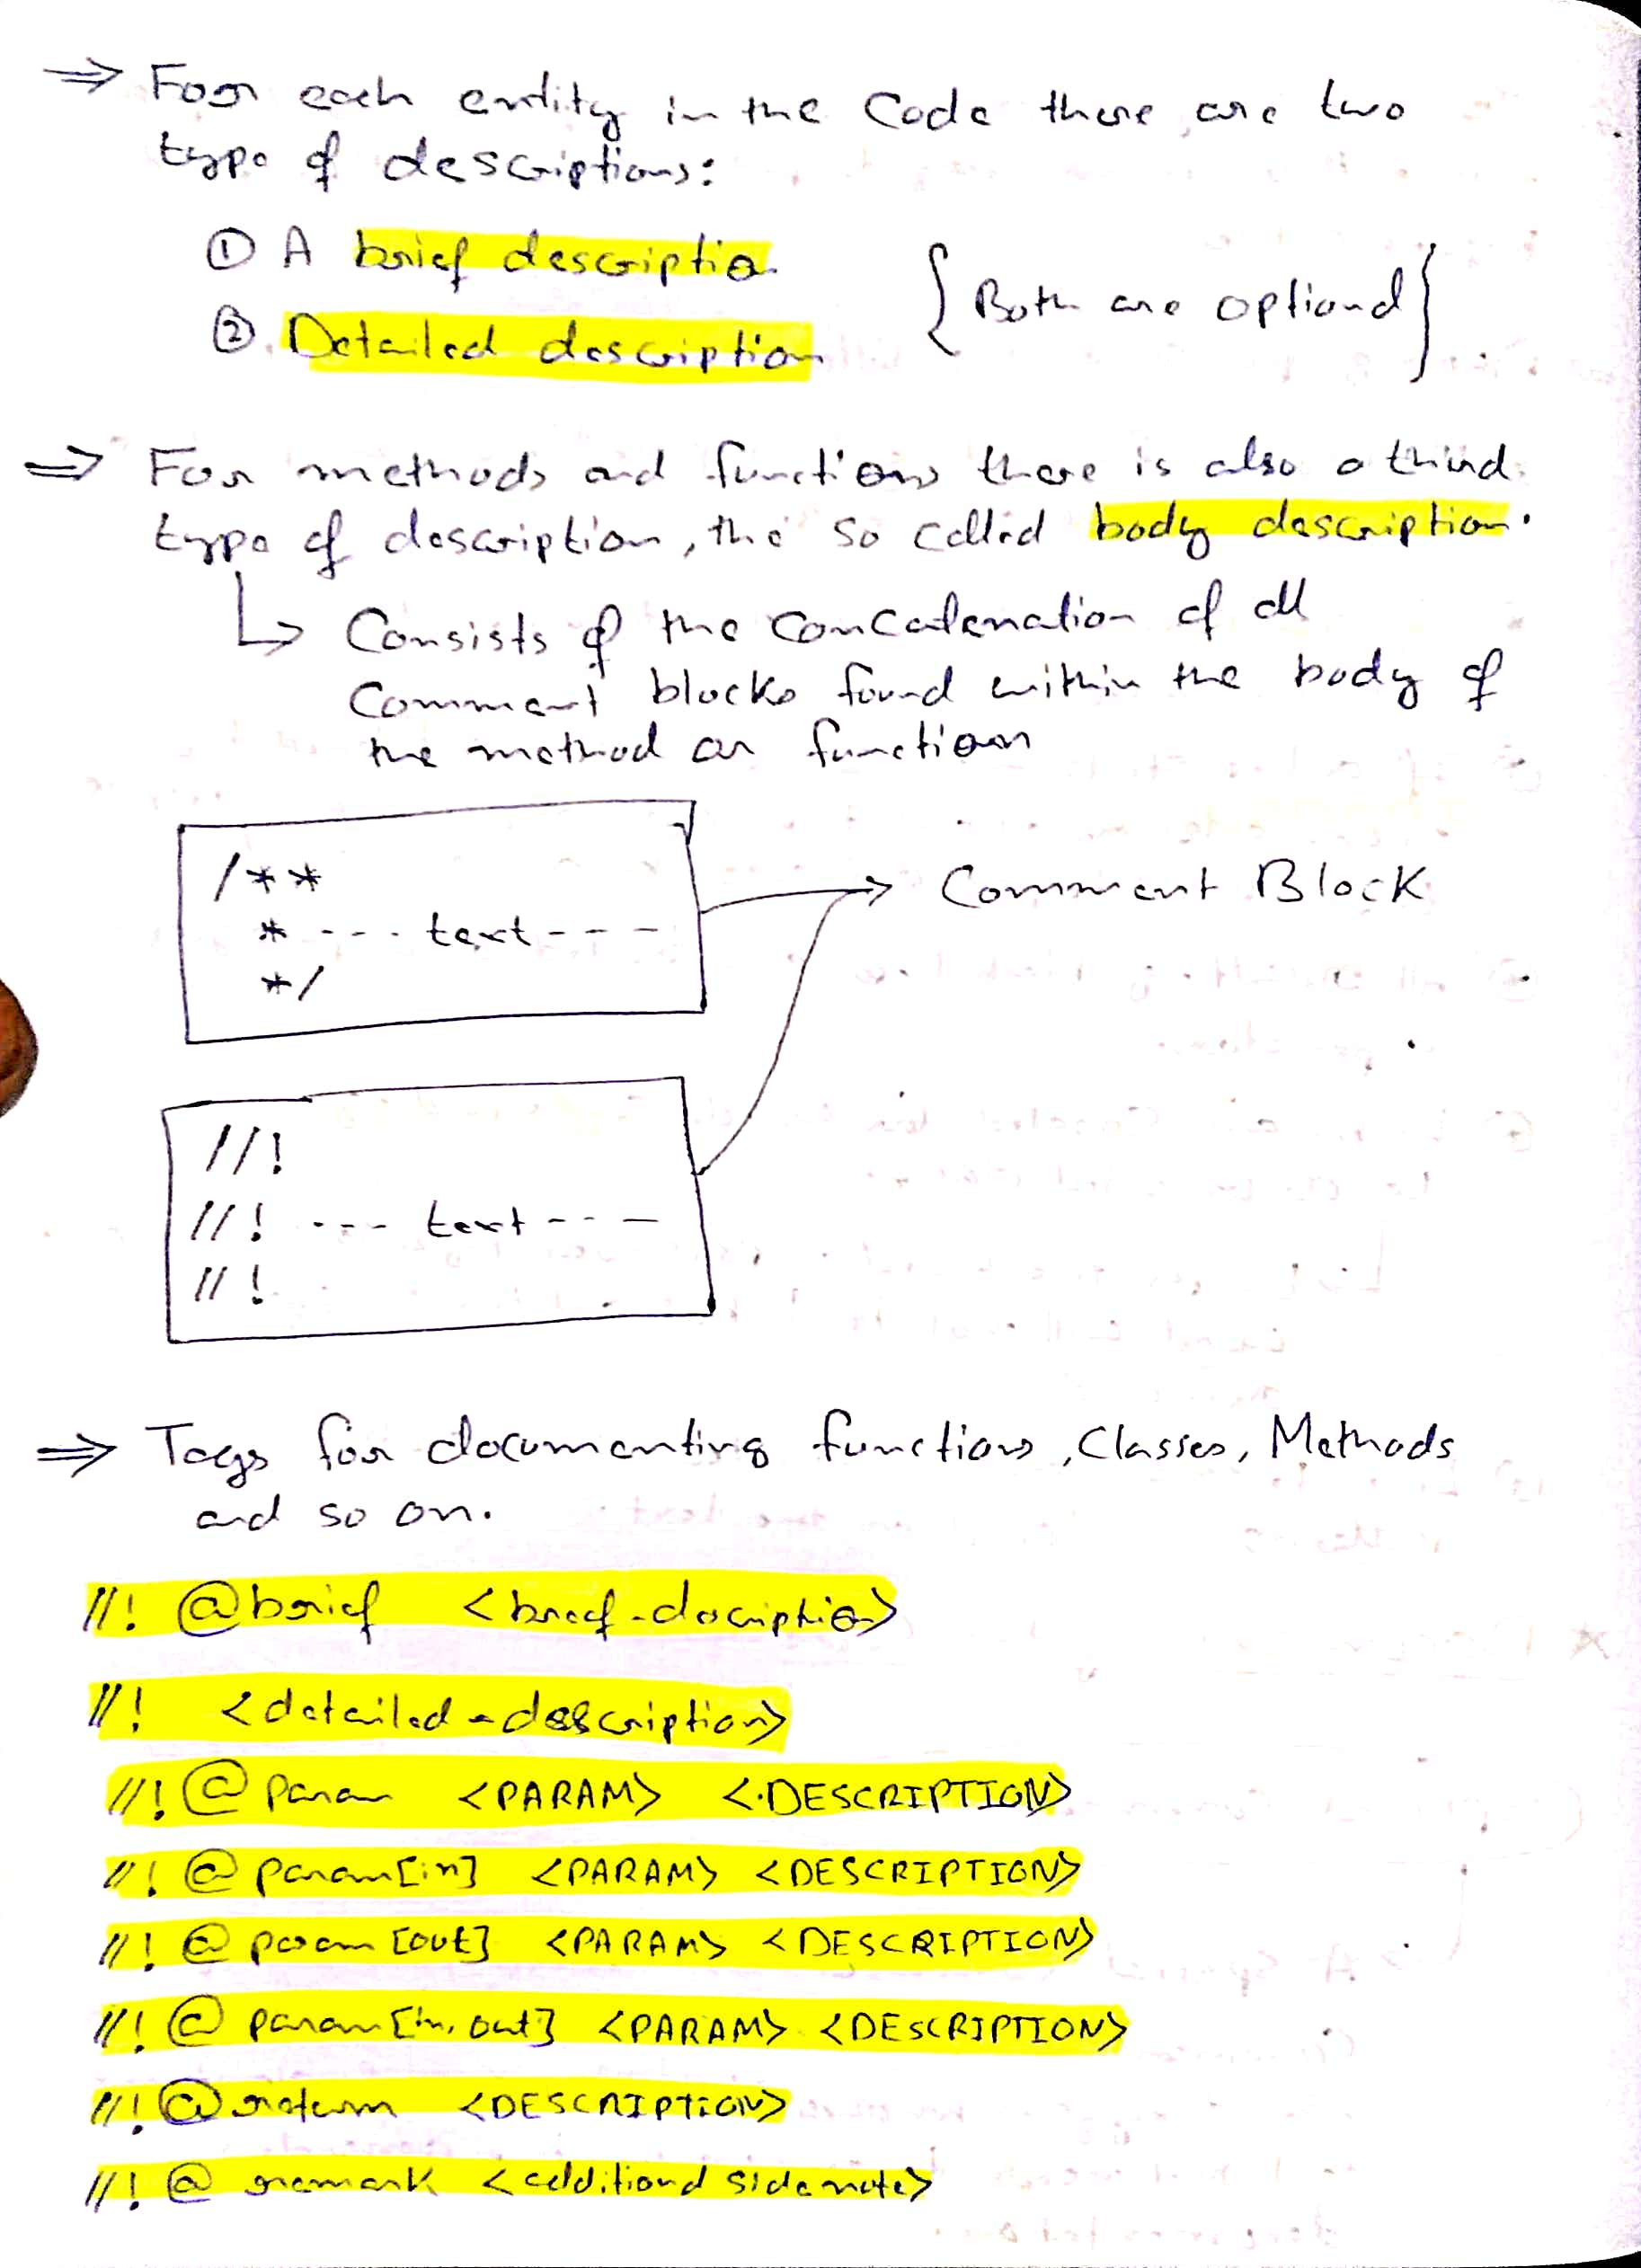 ⇒ For each entity in the Code there are two
type of descriptions:
① A brief description
② Detailed description
{Both are optional}
⇒ For methods and functions there is also a third
type of description, the so called body description.
↳ Consists of the Concatenation of all
Comment blocks found within the body of
the method or function
/**
* --- text ---
*/
→ Comment Block
//!
//! --- text ---
//!
⇒ Tags for documenting functions, Classes, Methods
and so on.
//! @brief <breef-docription>
//! <detailed-description>
//! @param <PARAM> <DESCRIPTION>
//! @param[in] <PARAM> <DESCRIPTION>
//! @param[out] <PARAM> <DESCRIPTION>
//! @param[in, out] <PARAM> <DESCRIPTION>
//! @return <DESCRIPTION>
//! @remark <additional side note>